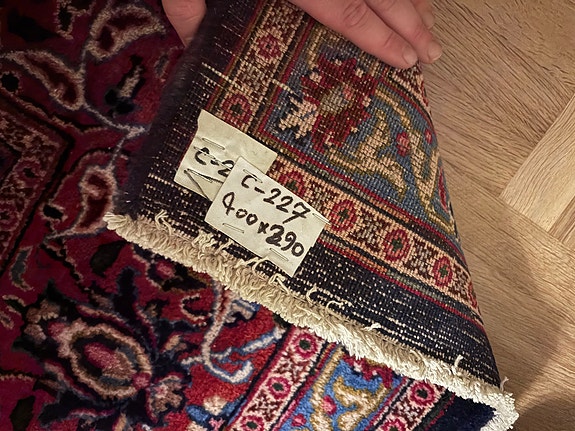 C-2
C-227
400x290